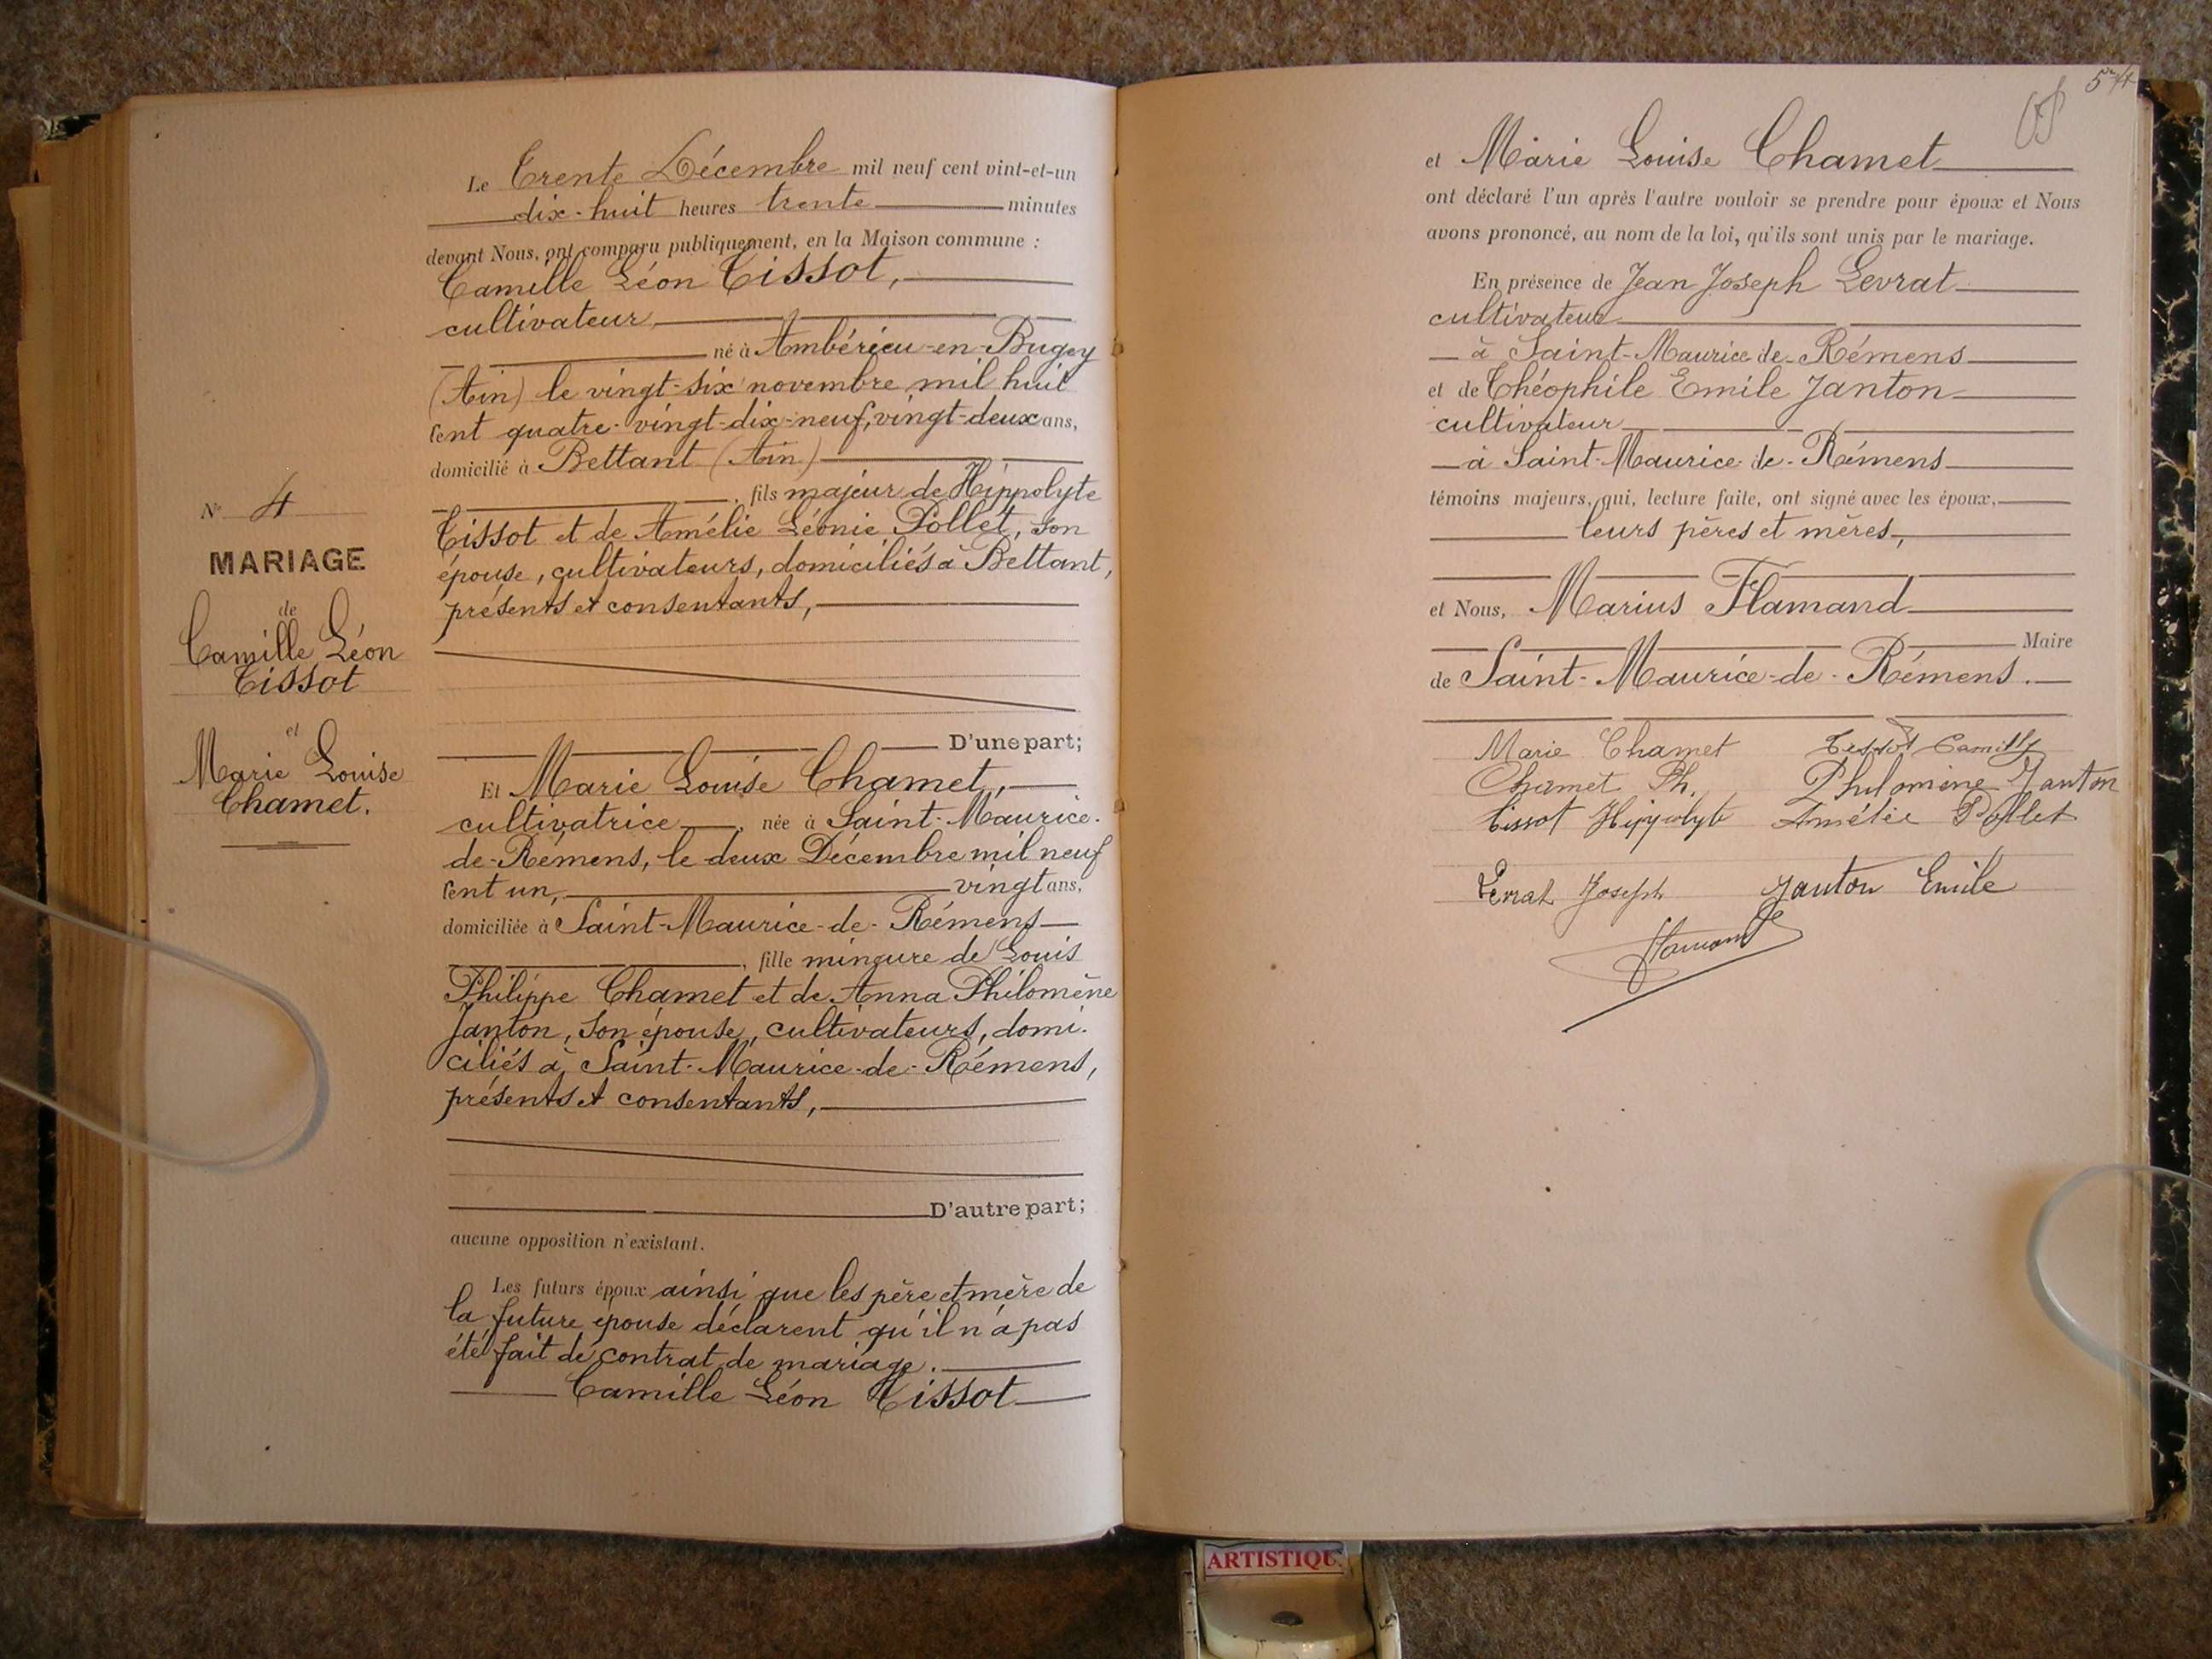 N° 4
MARIAGE
de
Camille Léon
Tissot
et
Marie Louise
Chamet.
Le Trente Décembre mil neuf cent vint-et-un
dix-huit heures trente minutes
devant Nous, ont comparu publiquement, en la Maison commune :
Camille Léon Tissot,
cultivateur
né à Ambérieu-en-Bugey
(Ain) le vingt-six novembre mil huit
cent quatre-vingt-dix-neuf, vingt-deux ans,
domicilié à Bettant (Ain)
, fils majeur de Hippolyte
Tissot et de Amélie Léonie Pollet, son
épouse, cultivateurs, domiciliés à Bettant,
présents et consentants,
D'une part;
Et Marie Louise Chamet,
cultivatrice, née à Saint-Maurice-
de-Rémens, le deux Décembre mil neuf
cent un, vingt ans,
domiciliée à Saint-Maurice-de-Rémens
, fille mineure de Louis
Philippe Chamet et de Anna Philomène
Janton, son épouse, cultivateurs, domi-
ciliés à Saint-Maurice-de-Rémens,
présents et consentants,
D'autre part;
aucune opposition n'existant.
Les futurs époux ainsi que les père et mère de
la future épouse déclarent qu'il n'a pas
été fait de contrat de mariage.
Camille Léon Tissot
54
et Marie Louise Chamet
ont déclaré l'un après l'autre vouloir se prendre pour époux et Nous
avons prononcé, au nom de la loi, qu'ils sont unis par le mariage.
En présence de Jean Joseph Levrat
cultivateur
à Saint-Maurice-de-Rémens
et de Théophile Emile Janton
cultivateur
à Saint-Maurice-de-Rémens
témoins majeurs, qui, lecture faite, ont signé avec les époux,
leurs pères et mères,
et Nous, Marius Flamand
Maire
de Saint-Maurice-de-Rémens.
Marie Chamet Tissot Camille
Chamet Ph. Philomène Janton
Tissot Hippolyte Amélie Pollet
Levrat Joseph Janton Emile
Flamand
ARTISTIQU